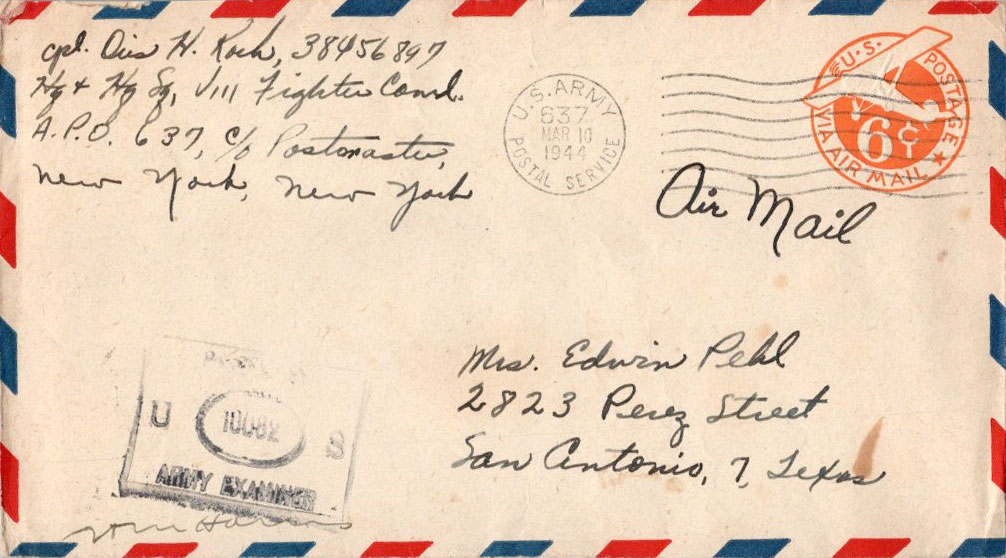 cpl. Otis H. Roch, 38456897
Hq & Hq Sq, VIII Fighter Comd.
A.P.O. 637, c/o Postmaster,
New York, New York
U.S. ARMY
637
MAR 10
1944
POSTAL SERVICE
U.S. POSTAGE
6¢
VIA AIR MAIL
Air Mail
Mrs. Edwin Pehl
2823 Perez Street
San Antonio, 7, Texas
U 10082 S
ARMY EXAMINER